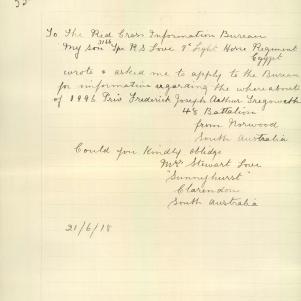 To The Red Cross Information Bureau
My son Tpr R S Love 9th Light Horse Regiment
Egypt
wrote & asked me to apply to the Bureau
for information regarding the whereabouts
of 1996 Priv Frederick Joseph Arthur Tregoweth
48 Battalion
from Norwood
South Australia
Could you Kindly oblidge
Mrs Stewart Love
"Sunnyhurst"
Clarendon
South Australia
21/6/18